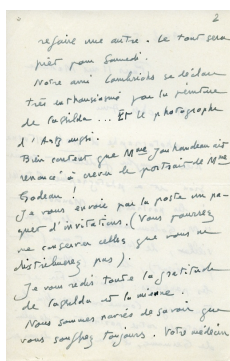 2
refaire une autre. Le tout sera
prêt pour Samedi.
Notre ami Lambrichs se déclare
très enthousiasmé par la peinture
de ... Et le photographe
d'Arts aussi.
Bien content que Mme Jouhandeau ait
renoncé à crever le portrait de Mme
Godeau !
Je vous envoie par la poste un pa-
quet d'invitations. (Vous pourrez
ne conserver celles que vous ne
distribuerez pas).
Je vous redis toute la gratitude
de et la mienne.
Nous sommes navrés de savoir que
vous souffrez toujours. Votre médecin